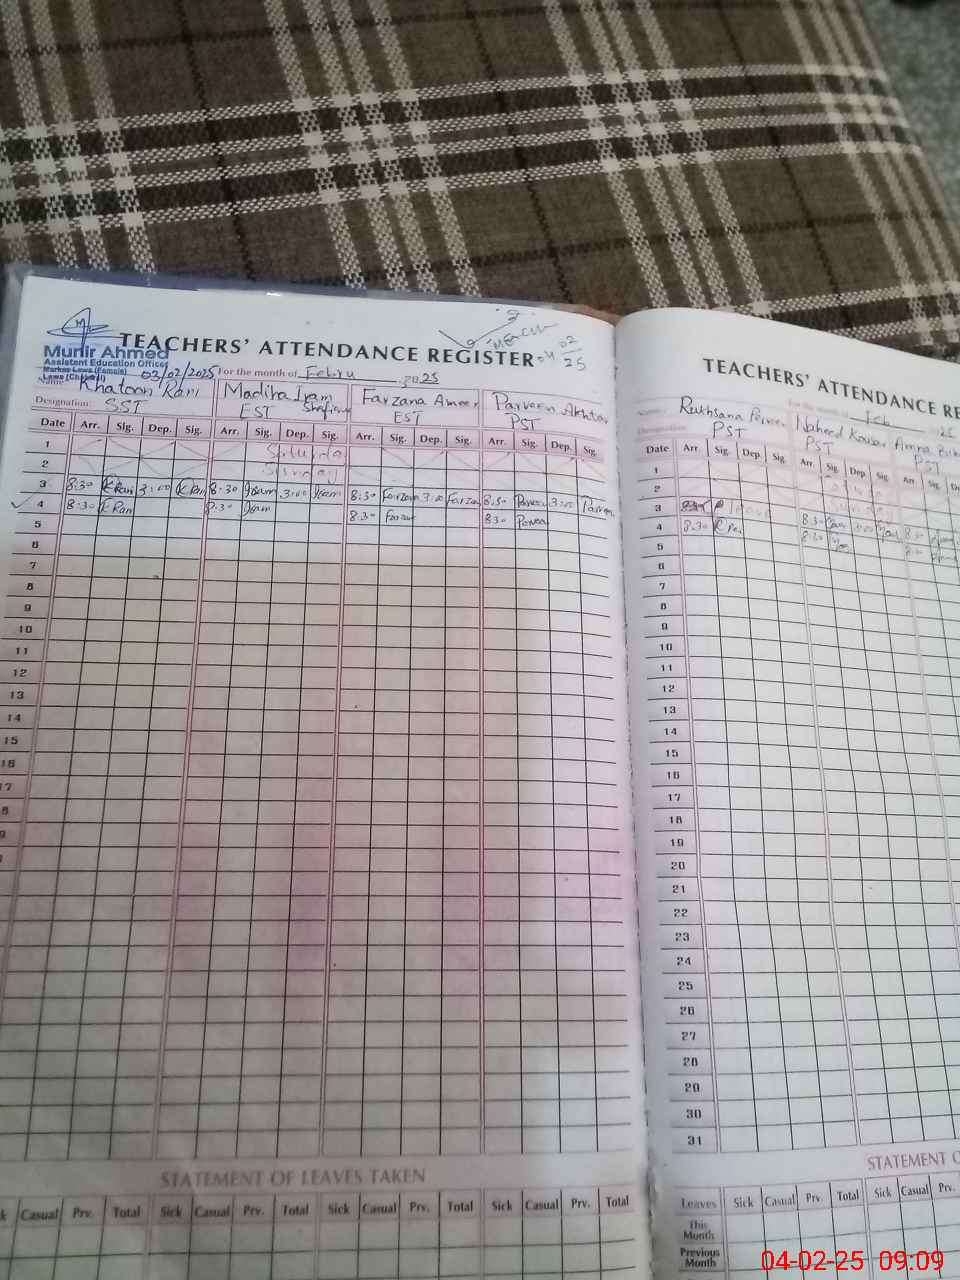 TEACHERS' ATTENDANCE REGISTER
Munir Ahmed
Assistant Education Officer
Markaz Lawa (Female)
03/02/2025
For the month of Febru 2025
04 02 25
Name: Khatoon Rani Madiha Iram Farzana Ameer Parveen Akhtar
Designation: SST EST EST PST
Date Arr. Sig. Dep. Sig. Arr. Sig. Dep. Sig. Arr. Sig. Dep. Sig. Arr. Sig. Dep. Sig.
1
2 Sunday
3 8:30 K Rani 3:00 K Ran 8:30 3:00 8:30 Farzana 3:00 Farzan 8:30 Parveen 3:00 Parveen
4 8:30 K Ran 8:30 8:30 Farzan 8:30 Parvee
5
6
7
8
9
10
11
12
13
14
15
16
17
STATEMENT OF LEAVES TAKEN
Casual Prv. Total Sick Casual Prv. Total Sick Casual Prv. Total Sick Casual Prv. Total
TEACHERS' ATTENDANCE RE
For the month of Feb
Name: Perveen Naheed Kousar Amna
Designation: PST PST PST
Date Arr. Sig. Dep. Sig. Arr. Sig. Dep. Sig. Arr. Sig. Dep.
1
2
3 leave 8:30
4 8:30 8:30
5
6
7
8
9
10
11
12
13
14
15
16
17
18
19
20
21
22
23
24
25
26
27
28
29
30
31
STATEMENT O
Leaves Sick Casual Prv. Total Sick Casual Prv.
This Month
Previous Month
04-02-25 09:09